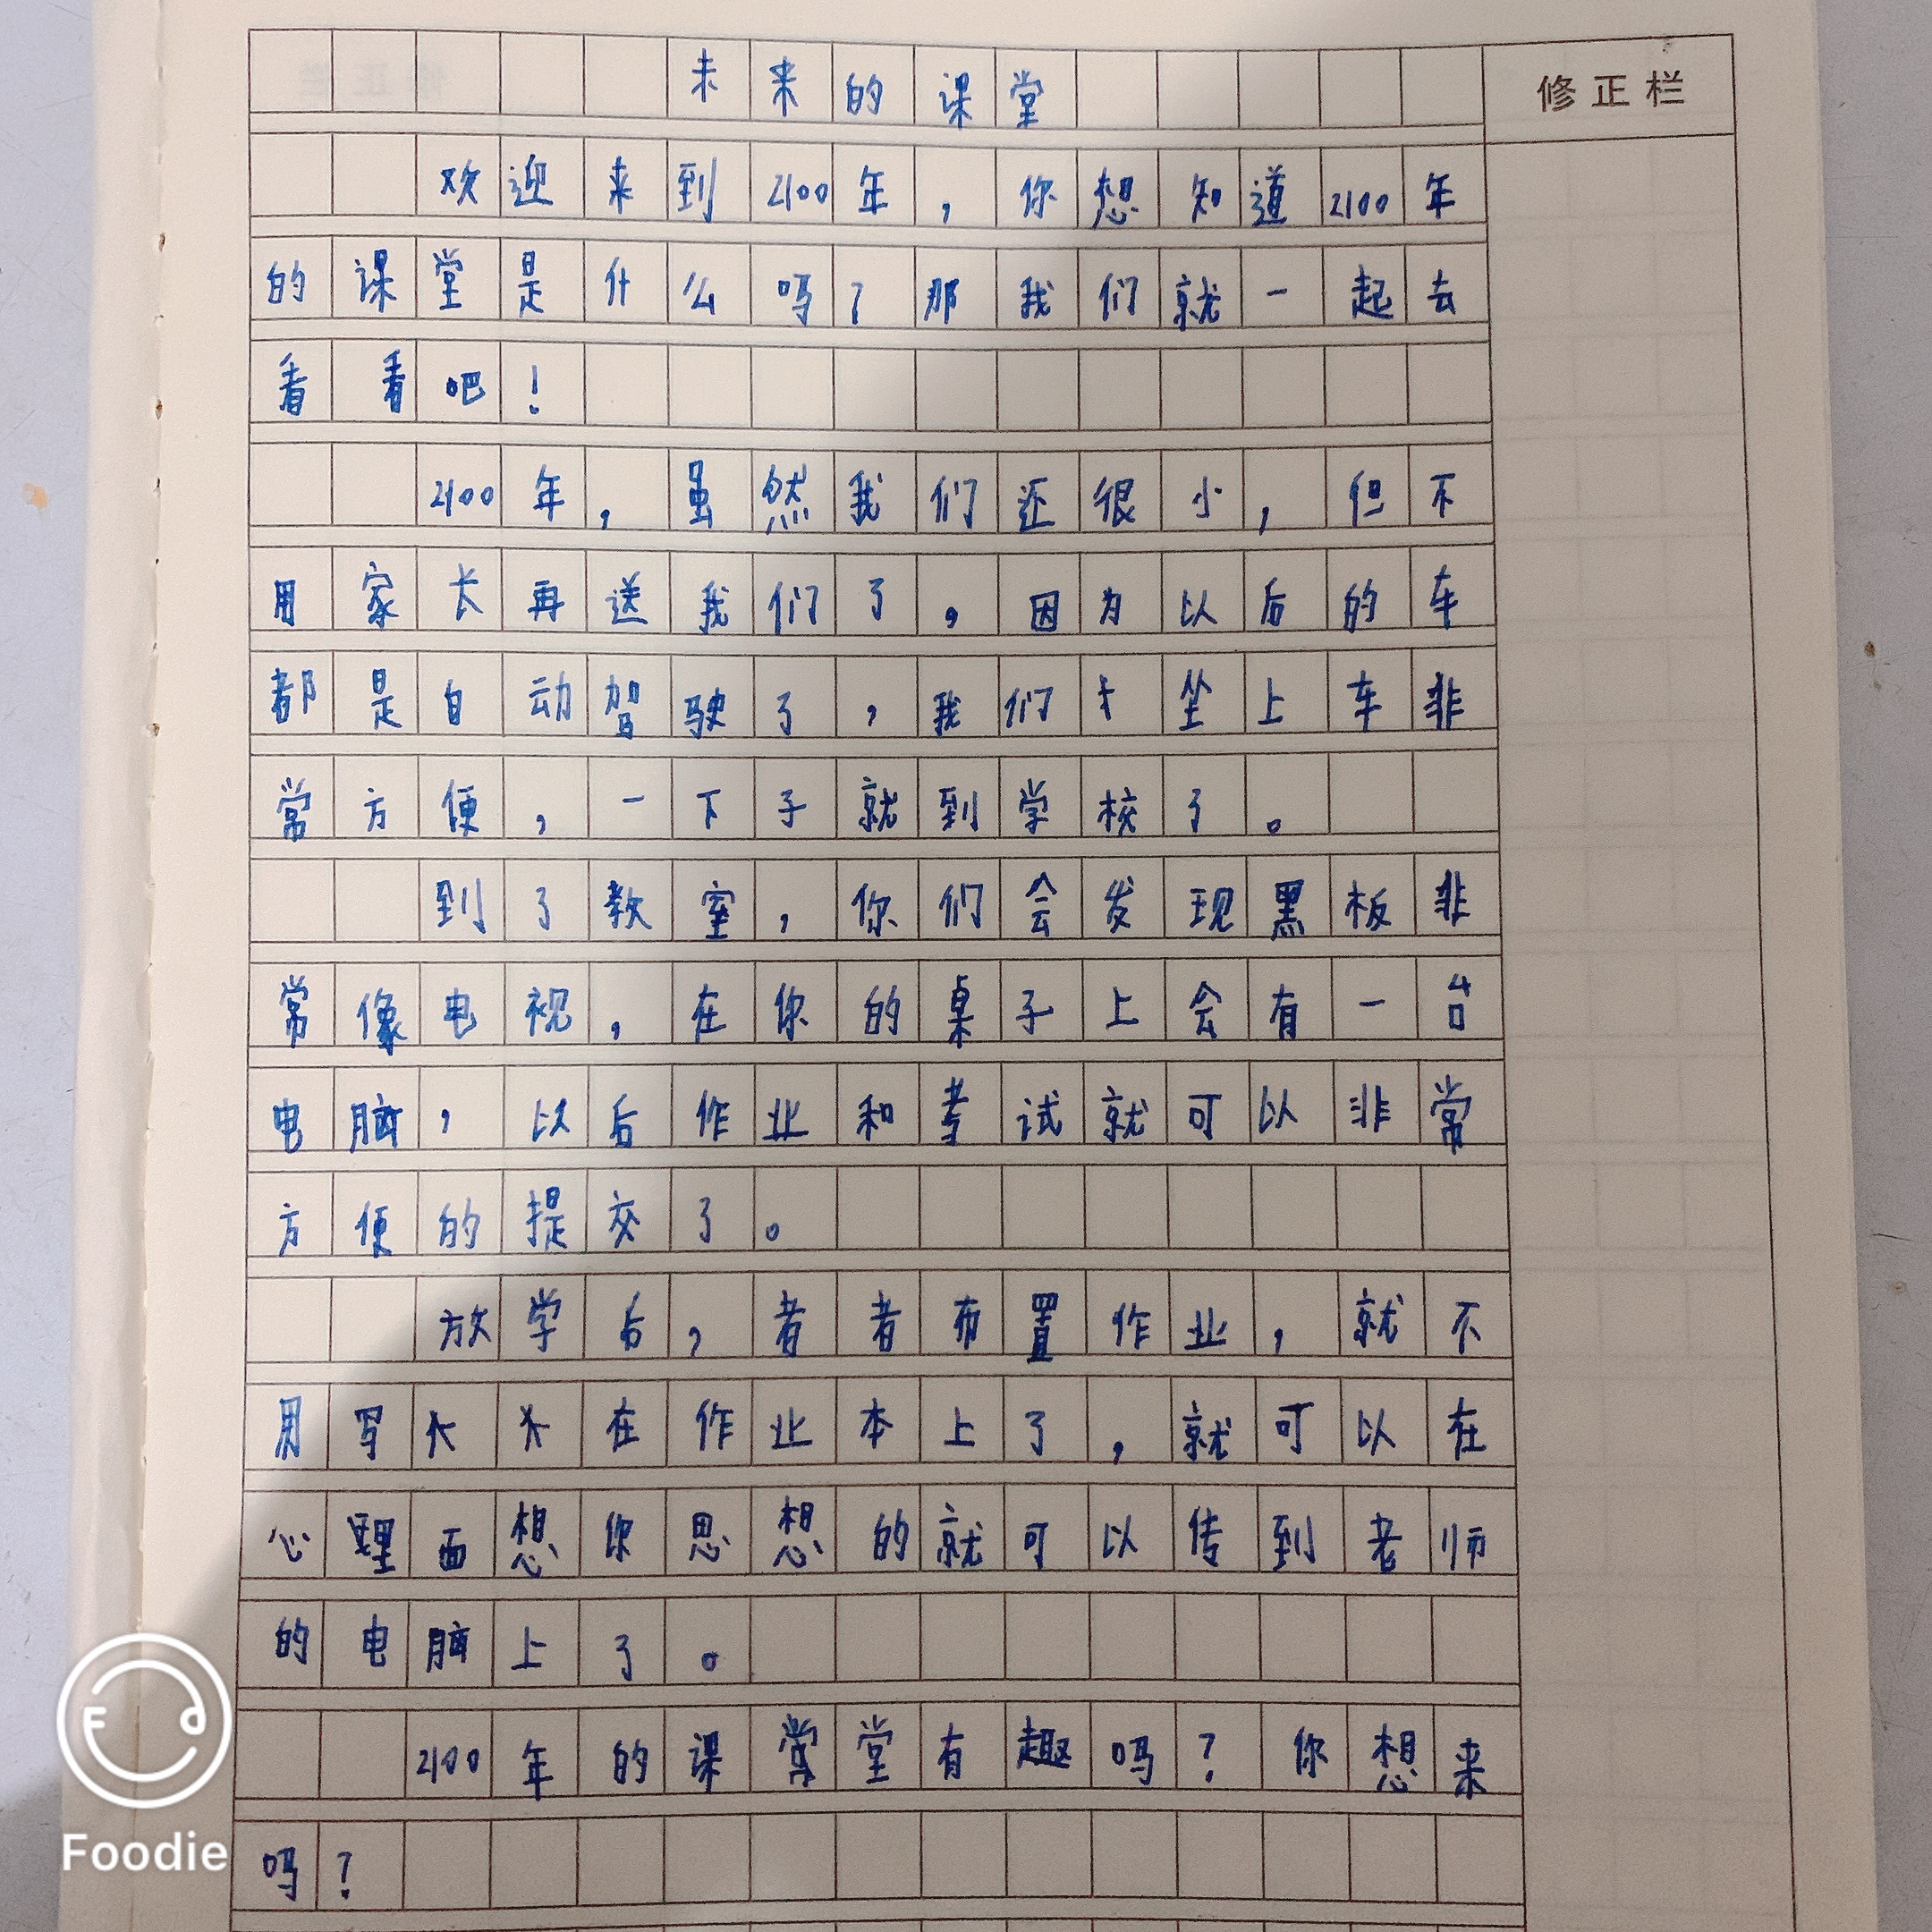 未来的课堂
修正栏
欢迎来到2100年，你想知道2100年
的课堂是什么吗？那我们就一起去
看看吧！
2100年，虽然我们还很小，但不
用家长再送我们了，因为以后的车
都是自动驾驶了，我们才坐上车非
常方便，一下子就到学校了。
到了教室，你们会发现黑板非
常像电视，在你的桌子上会有一台
电脑，以后作业和考试就可以非常
方便的提交了。
放学后，者者布置作业，就不
用写在作业本上了，就可以在
心里面想你思想的就可以传到老师
的电脑上了。
2100年的课常堂有趣吗？你想来
吗？
Foodie